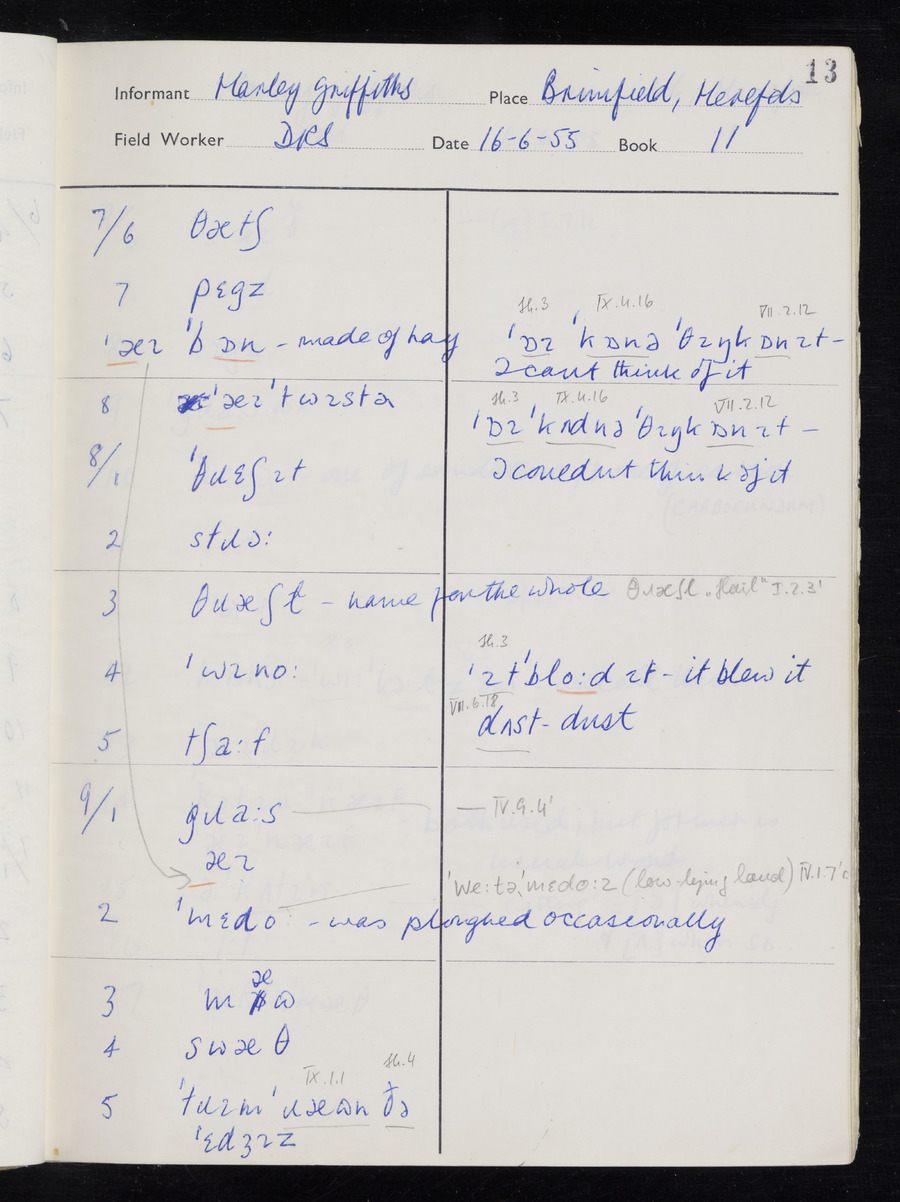 13
Informant Harley Griffiths Place Brimfield, Herefds
Field Worker DRS Date 16-6-55 Book 11
7/6 θætʃ
7 pɛgz
ˈæɪ ˈbɒn - made of hay
8 ˈæɪ ˈtɷɪstə
8/1 ˈθɹɛʃɪt
2 stɹɔ:
3 θɹæʃɫ - name for the whole θɹæʃl „flail“ I.2.3'
4 ˈwɪno:
5 tʃa:f
9/1 gɹa:s
æɪ
2 ˈmɛdo: - was ploughed occasionally
3 mæɷ
4 swæθ
5 ˈtɹɪm ˈɹæɷn ðə
ˈɛdʒɪz
IX.1.1 sh.4
sh.3 IX.4.16 VII.2.12
ˈɒɪ ˈkɒnə ˈθɪŋk ɒn ɪt -
I can't think of it
sh.3 IX.4.16 VII.2.12
ˈɒɪ ˈkʌdnə ˈθɪŋk ɒn ɪt -
I couldn't think of it
sh.3
ˈɪt ˈblo:d ɪt - it blew it
VII.6.18
dʌst - dust
— IV.9.4'
ˈwe:tə ˈmɛdo:z (low-lying land) IV.1.7'